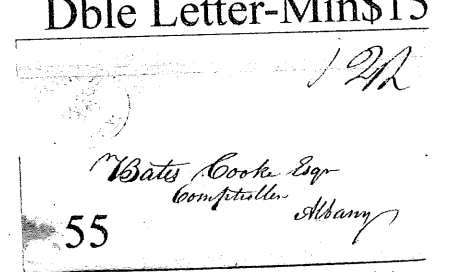 Dble Letter-Min$15
Bates Cooke Esqr
Comptroller
Albany
55